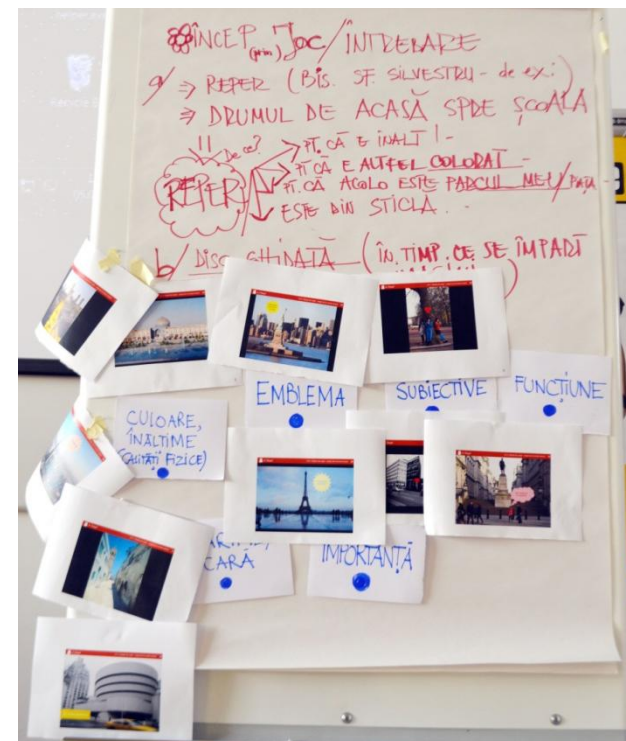 ÎNCEP (prin) JOC/ÎNTREBARE
a/ ⇒ REPER (BIS. SF. SILVESTRU - de ex:)
⇒ DRUMUL DE ACASĂ SPRE ȘCOALĂ
De ce?
→ PT. CĂ E ÎNALT! -
REPER
PT. CĂ E ALTFEL COLORAT -
PT. CĂ ACOLO ESTE PARCUL MEU/PIAȚA
ESTE DIN STICLĂ.
b/ DISC. GHIDATĂ (ÎN TIMP CE SE ÎMPART
EMBLEMA
SUBIECTIVE
FUNCȚIUNE
CULOARE,
ÎNĂLȚIME
(CALITĂȚI FIZICE)
IMPORTANȚĂ